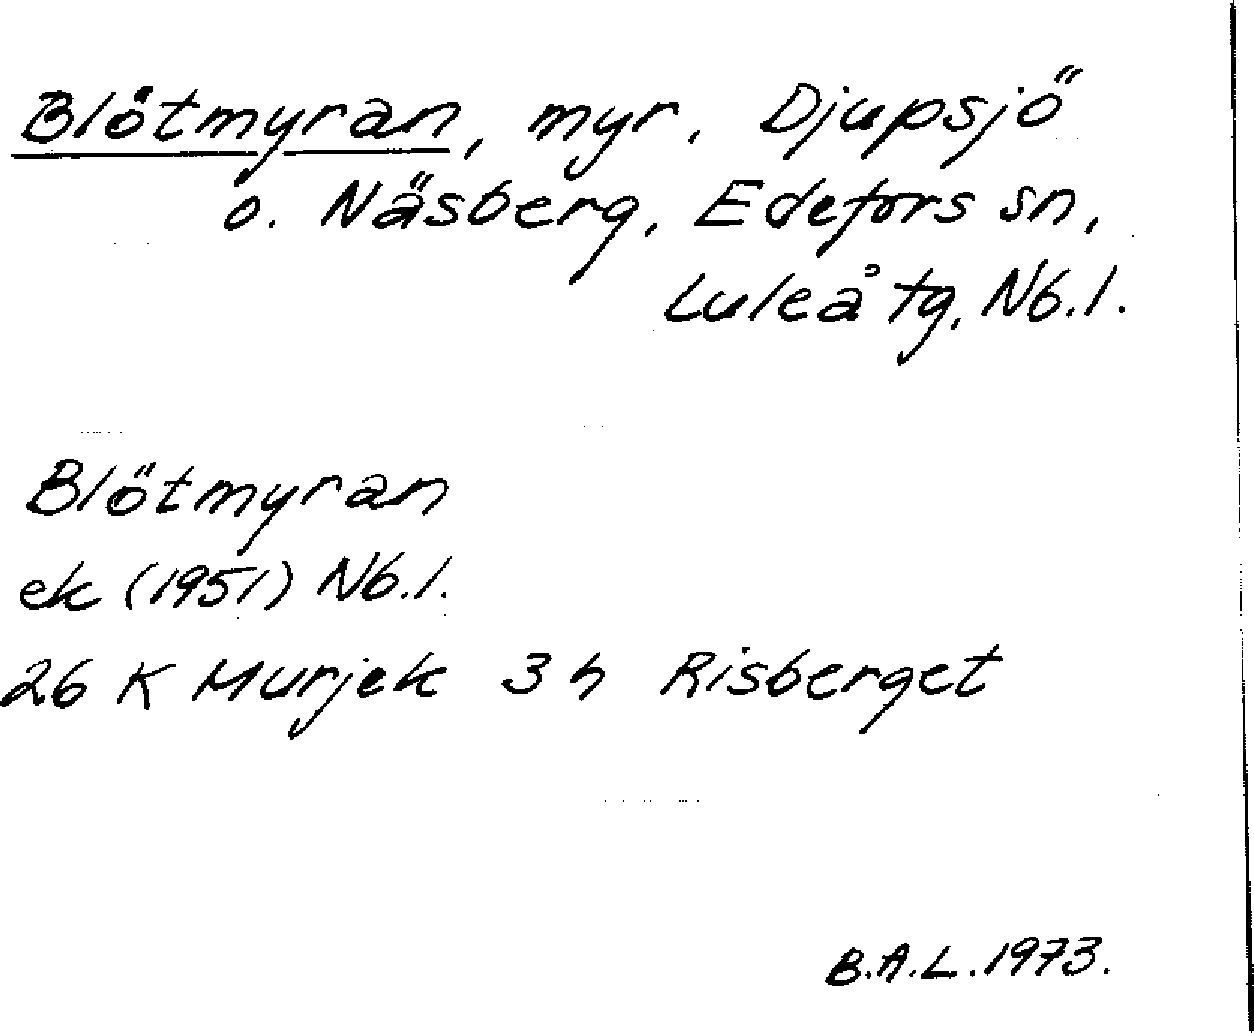 Blötmyran, myr, Djupsjö
o. Näsberg, Edefors sn,
Luleå tg, Nb.l.
Blötmyran
ek (1951) Nb.l.
26 K Murjek 3 h Risberget
B.A.L. 1973.